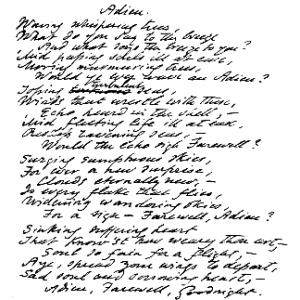 Adieu.
Waving whispering trees,
What do you say to the breeze
And what says the breeze to you?
'Mid passing souls ill at ease,
Moving murmuring trees,
Would ye ever wave an Adieu?
Tossing turbulent seas,
Winds that wrestle with these,
Echo heard in the shell,—
'Mid fleeting life ill at ease,
Restless ravening seas,—
Would the echo sigh Farewell?
Surging sumptuous skies,
For ever a new surprise,
Clouds eternally new,—
Is every flake that flies,
Widening wandering skies,
For a sign—Farewell, Adieu?
Sinking suffering heart
That know'st how weary thou art,—
Soul so fain for a flight,—
Aye, spread your wings to depart,
Sad soul and sorrowing heart,—
Adieu, Farewell, Goodnight.